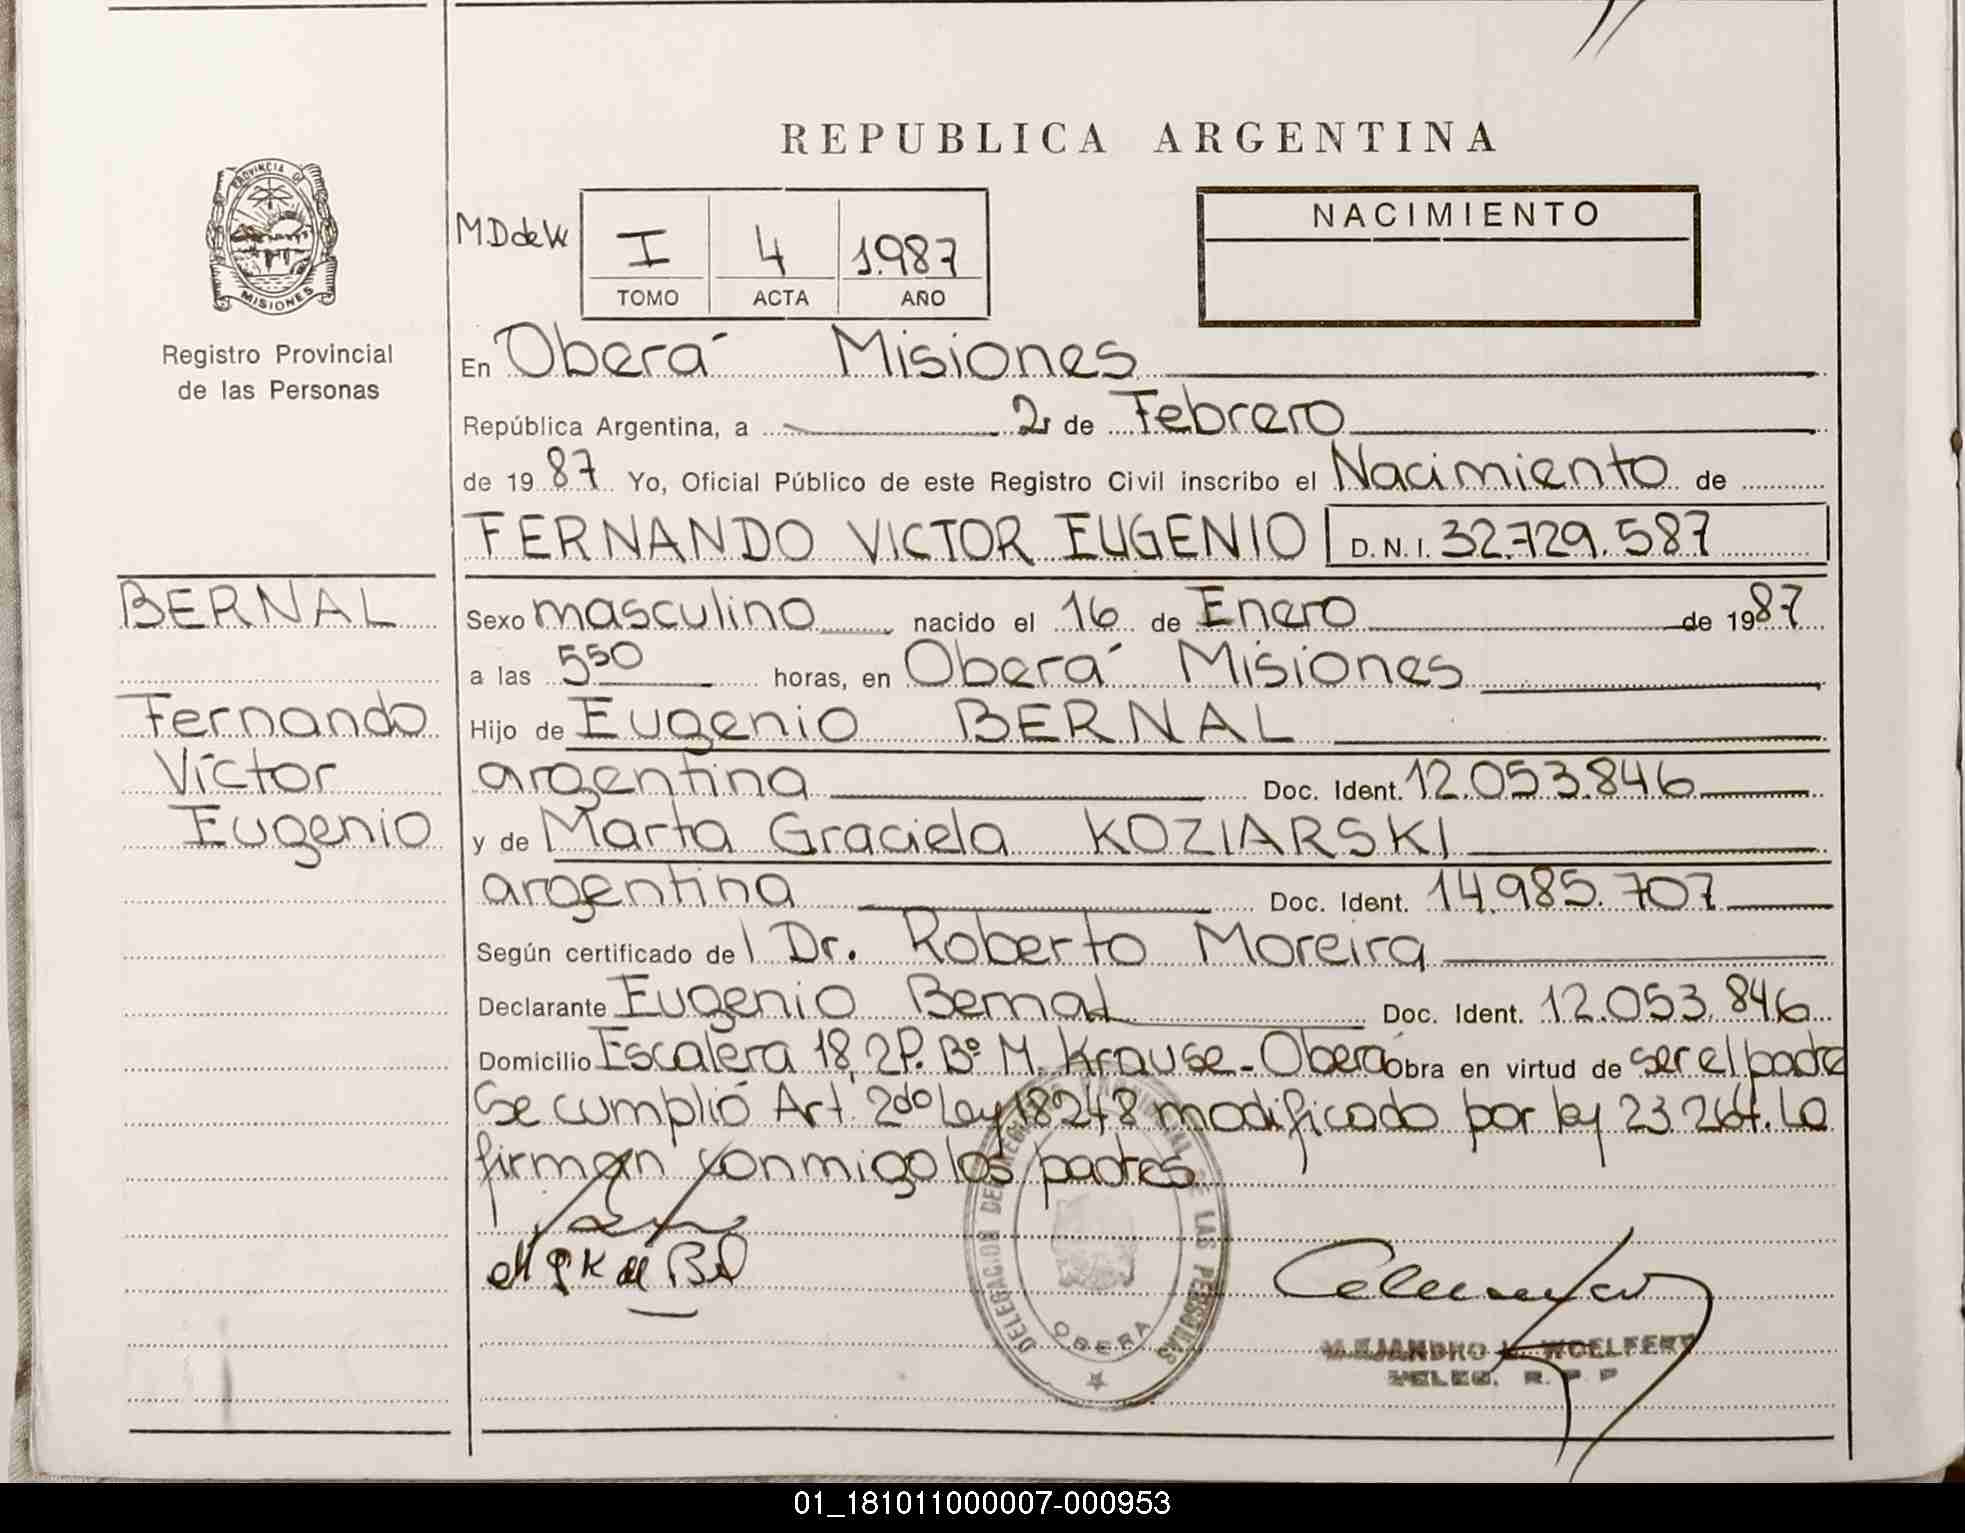 REPUBLICA ARGENTINA
PROVINCIA DE
MISIONES
Registro Provincial
de las Personas
MDdeW
I 4 1.987
TOMO ACTA AÑO
NACIMIENTO
En Oberá Misiones
República Argentina, a 2 de Febrero
de 19 87 Yo, Oficial Público de este Registro Civil inscribo el Nacimiento de
FERNANDO VICTOR EUGENIO D.N.I. 32.729.587
BERNAL
Fernando
Víctor
Eugenio
Sexo masculino nacido el 16 de Enero de 1987
a las 550 horas, en Oberá Misiones
Hijo de Eugenio BERNAL
argentina Doc. Ident. 12.053.846
y de Marta Graciela KOZIARSKI
argentina Doc. Ident. 14.985.707
Según certificado del Dr. Roberto Moreira
Declarante Eugenio Bernal Doc. Ident. 12.053.846
Domicilio Escalera 18, 2P. Bº M. Krause-Oberá obra en virtud de ser el padre
Se cumplió Art. 2do Ley 18248 modificado por ley 23.264. La
firman conmigo los padres
DELEGACION DEL REGISTRO PROVINCIAL DE LAS PERSONAS
OBERA
ALEJANDRO WOELFERT
DELEG. R. P. P
01_181011000007-000953